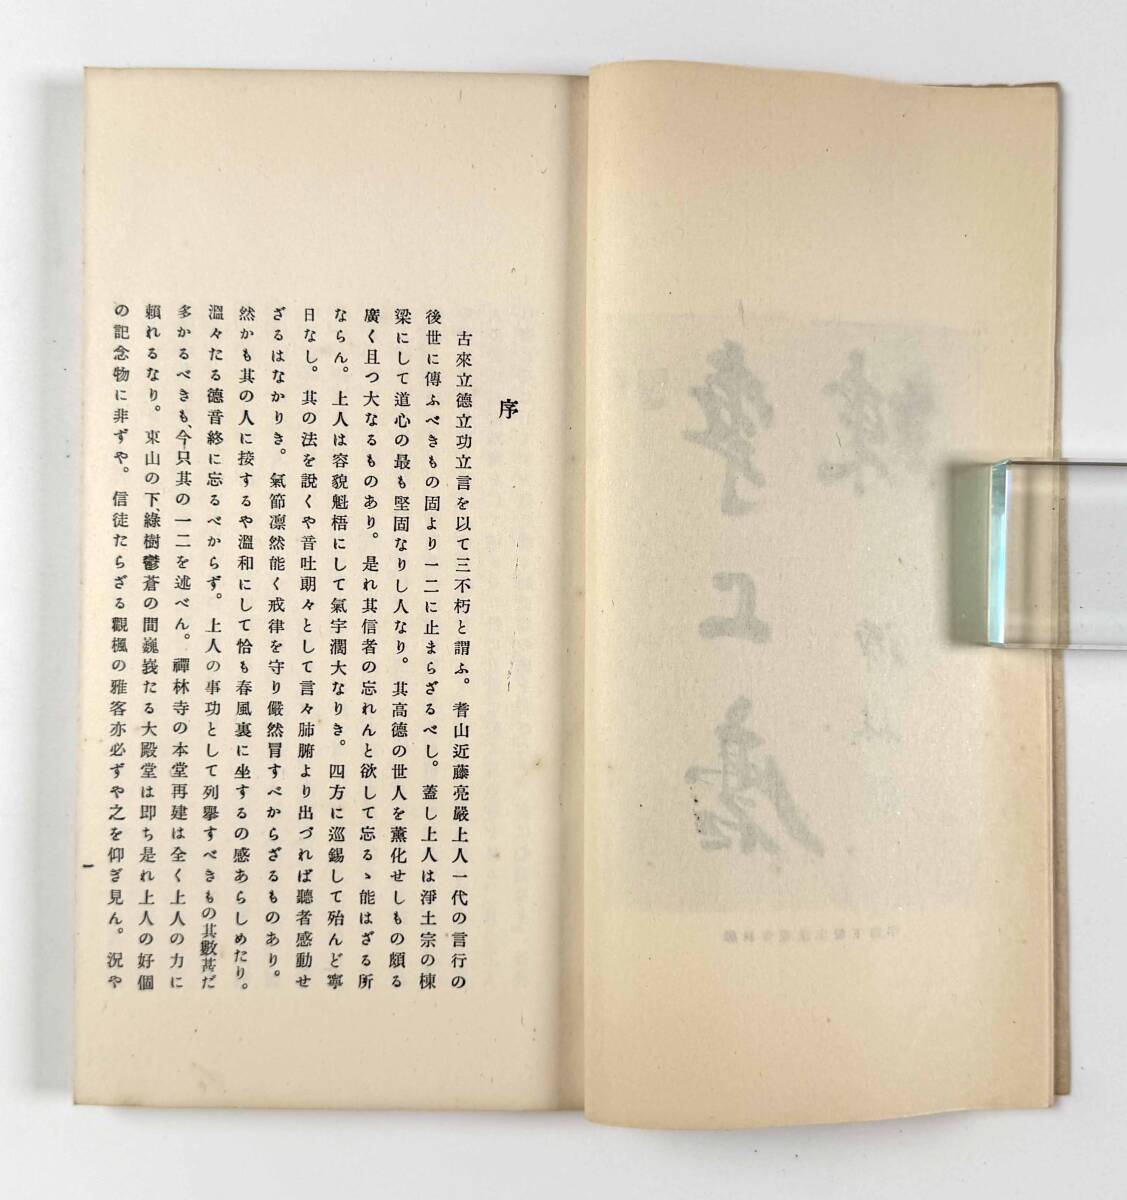 序
古來立德立功立言を以て三不朽と謂ふ。耆山近藤亮嚴上人一代の言行の
後世に傳ふべきもの固より一二に止まらざるべし。蓋し上人は淨土宗の棟
梁にして道心の最も堅固なりし人なり。其高德の世人を薰化せしもの頗る
廣く且つ大なるものあり。是れ其信者の忘れんと欲して忘るゝ能はざる所
ならん。上人は容貌魁梧にして氣宇濶大なりき。四方に巡錫して殆んど寧
日なし。其の法を說くや音吐朗々として言々肺腑より出づれば聽者感動せ
ざるはなかりき。氣節凛然能く戒律を守り儼然冒すべからざるものあり。
然かも其の人に接するや溫和にして恰も春風裏に坐するの感あらしめたり。
溫々たる德音終に忘るべからず。上人の事功として列擧すべきもの其數甚だ
多かるべきも、今只其の一二を述べん。禪林寺の本堂再建は全く上人の力に
賴れるなり。東山の下、綠樹鬱蒼の間巍峩たる大殿堂は卽ち是れ上人の好個
の記念物に非ずや。信徒たらざる觀楓の雅客亦必ずや之を仰ぎ見ん。況や
一